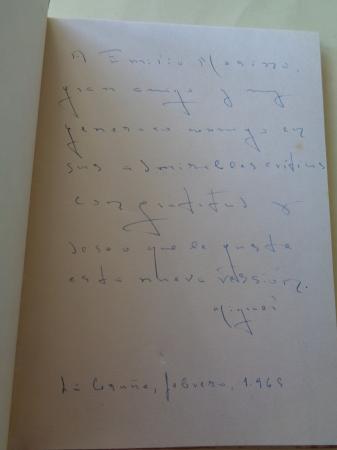 A Emilio Merino,
gran amigo y muy
generoso conmigo en
sus admirables críticas
con gratitud y
deseo que le guste
esta nueva versión.
Miguel
La Coruña, febrero, 1.969